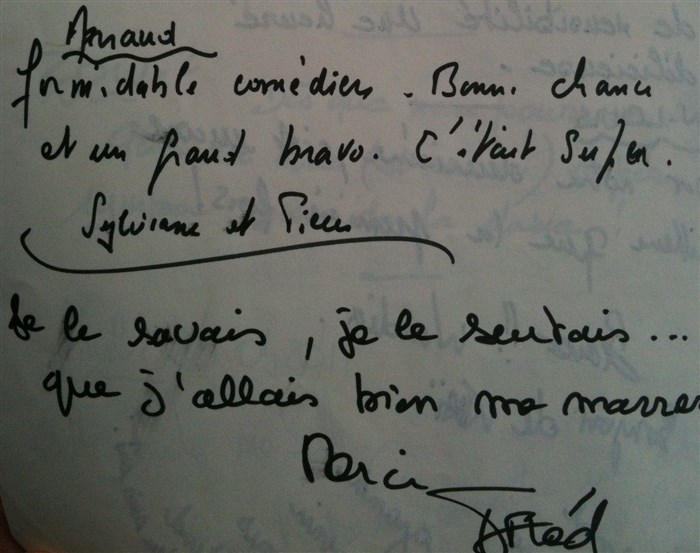 Arnaud
formidable comédien. Bonne chance
et un grand bravo. C'était super.
Sylviane et Pierre
Je le savais, je le sentais...
que j'allais bien me marrer
Merci